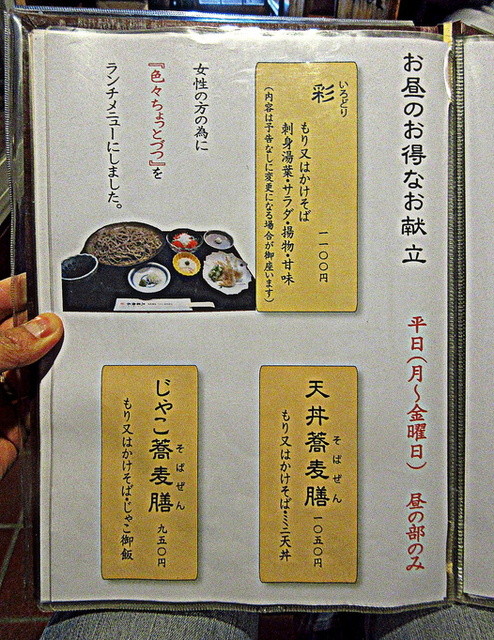 お昼のお得なお献立
平日(月～金曜日) 昼の部のみ
いろどり
彩
もり又はかけそば 一一〇〇円
刺身湯葉・サラダ・揚物・甘味
(内容は予告なしに変更になる場合が御座います)
女性の方の為に
『色々ちょっとづつ』を
ランチメニューにしました。
そばぜん
天丼蕎麦膳 一〇五〇円
もり又はかけそば・ミニ天丼
そばぜん
じゃこ蕎麦膳 九五〇円
もり又はかけそば・じゃこ御飯